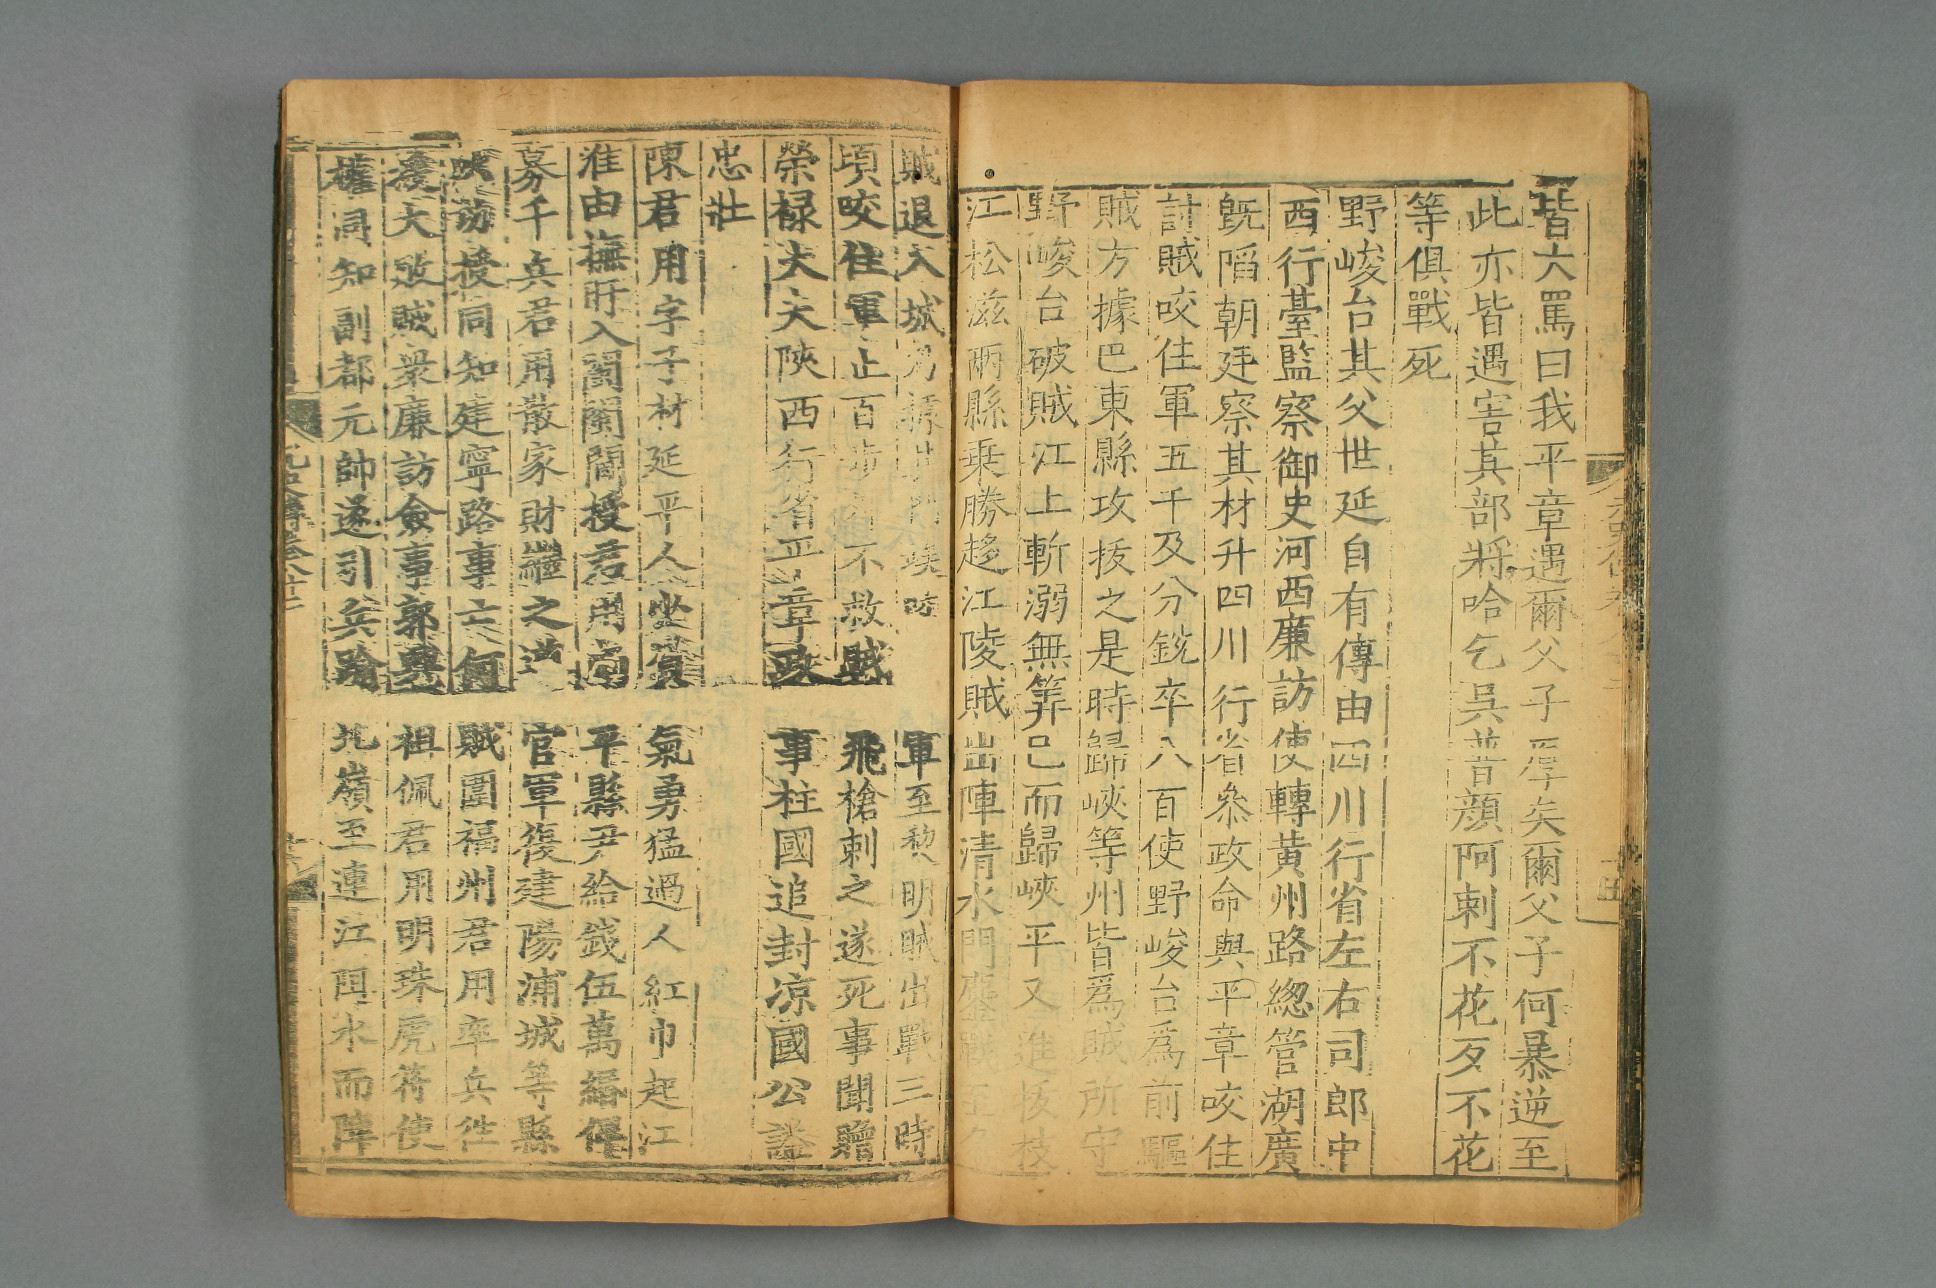 皆大罵曰我平章遇爾父子厚矣爾父子何暴逆至
此亦皆遇害其部將哈乞吳普顔阿剌不花歹不花
等俱戰死
野峻台其父世延自有傳由四川行省左右司郎中
西行臺監察御史河西廉訪使轉黃州路緫管湖廣
旣䧟朝廷察其材升四川行省叅政命與平章咬住
討賊咬住軍五千及分銳卒八百使野峻台爲前驅
賊方據巴東縣攻拔之是時歸峽等州皆爲賊所守
野峻台破賊江上斬溺無筭已而歸峽平又進拔枝
江松滋兩縣乗勝趍江陵賊出陣清水門鏖戰至
賊退入城乃據其門 咬 軍至黎明賊出戰三時
頃咬住軍止百步 不救賊飛槍刺之遂死事聞贈
榮祿大夫陜西行省平章政事柱國追封凉國公謚
忠壯
陳君用字子材延平人 氣勇猛過人紅巾起江
淮由撫 入閩閫授君用 平縣尹給錢伍萬緡俾
募千兵君用散家財繼之 官軍復建陽浦城等縣
授同知建寧路事亡何賊圍福州君用率兵徃
援大敗賊衆廉訪僉事郭興祖佩君用明珠虎符使
權同知副都元帥遂引兵踰北嶺至連江阻水而陣